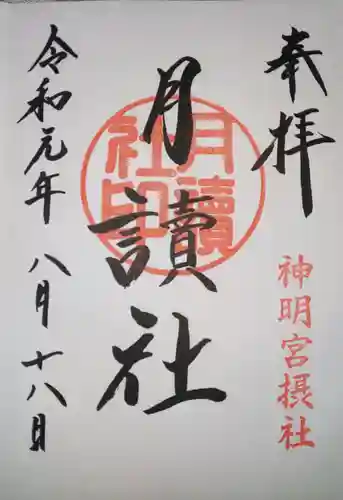 奉拝
神明宮摂社
月讀社
月讀社印
令和元年八月十八日